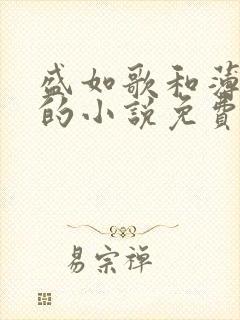 盛如歌和薄
的小說免費
易宗禪